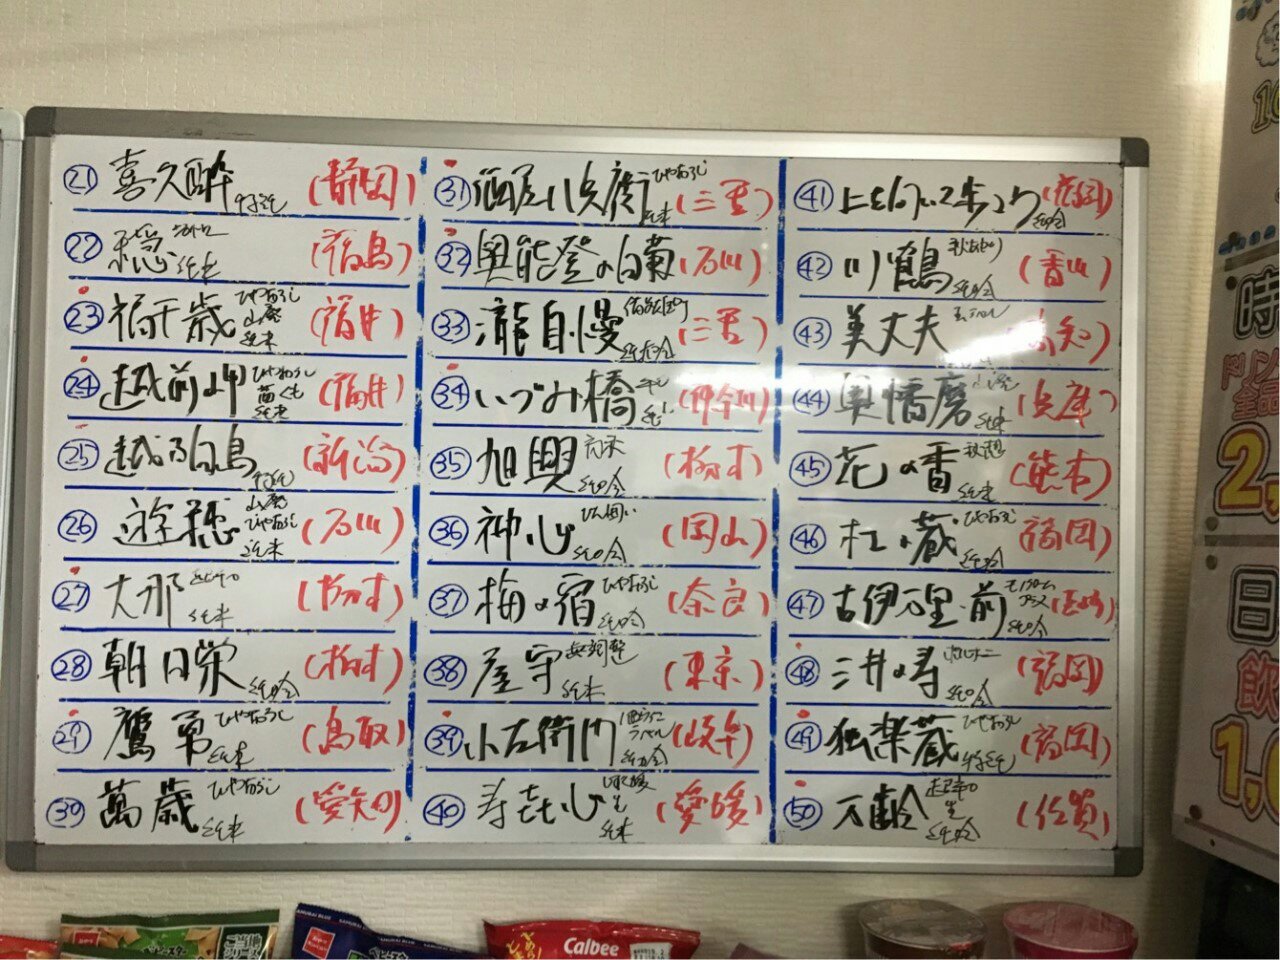 21 喜久酔 特純 (静岡)
22 穏 純米 (福島)
23 福千歳 ひやおろし 山廃 純米 (福井)
24 越前岬 ひやおろし 純米 (福井)
25 越乃白鳥 特純 (新潟)
26 遊穂 山廃 ひやおろし 純米 (石川)
27 大那 純米 (栃木)
28 朝日栄 純吟 (栃木)
29 鷹勇 ひやおろし 純米 (鳥取)
30 萬歳 ひやおろし 純米 (愛知)
31 酒屋八兵衛 ひやおろし 純米 (三重)
32 奥能登の白菊 (石川)
33 瀧自慢 純吟 (三重)
34 いづみ橋 (神奈川)
35 旭興 純吟 (栃木)
36 神心 純吟 (岡山)
37 梅の宿 ひやおろし 純吟 (奈良)
38 屋守 純米 (東京)
39 小左衛門 純吟 (岐阜)
40 寿喜心 純米 (愛媛)
41 上を向いて歩こう 純吟 (福岡)
42 川鶴 純吟 (香川)
43 美丈夫 (高知)
44 奥播磨 山廃 純米 (兵庫)
45 花の香 純米 (熊本)
46 杜の蔵 ひやおろし 純吟 (福岡)
47 古伊万里・前 純吟
48 三井の寿 純吟 (福岡)
49 独楽蔵 ひやおろし 特純 (福岡)
50 万齢 生 純吟 (佐賀)
時
ドリンク
全品
2,
日
飲
1,0
SAMURAI BLUE
Calbee